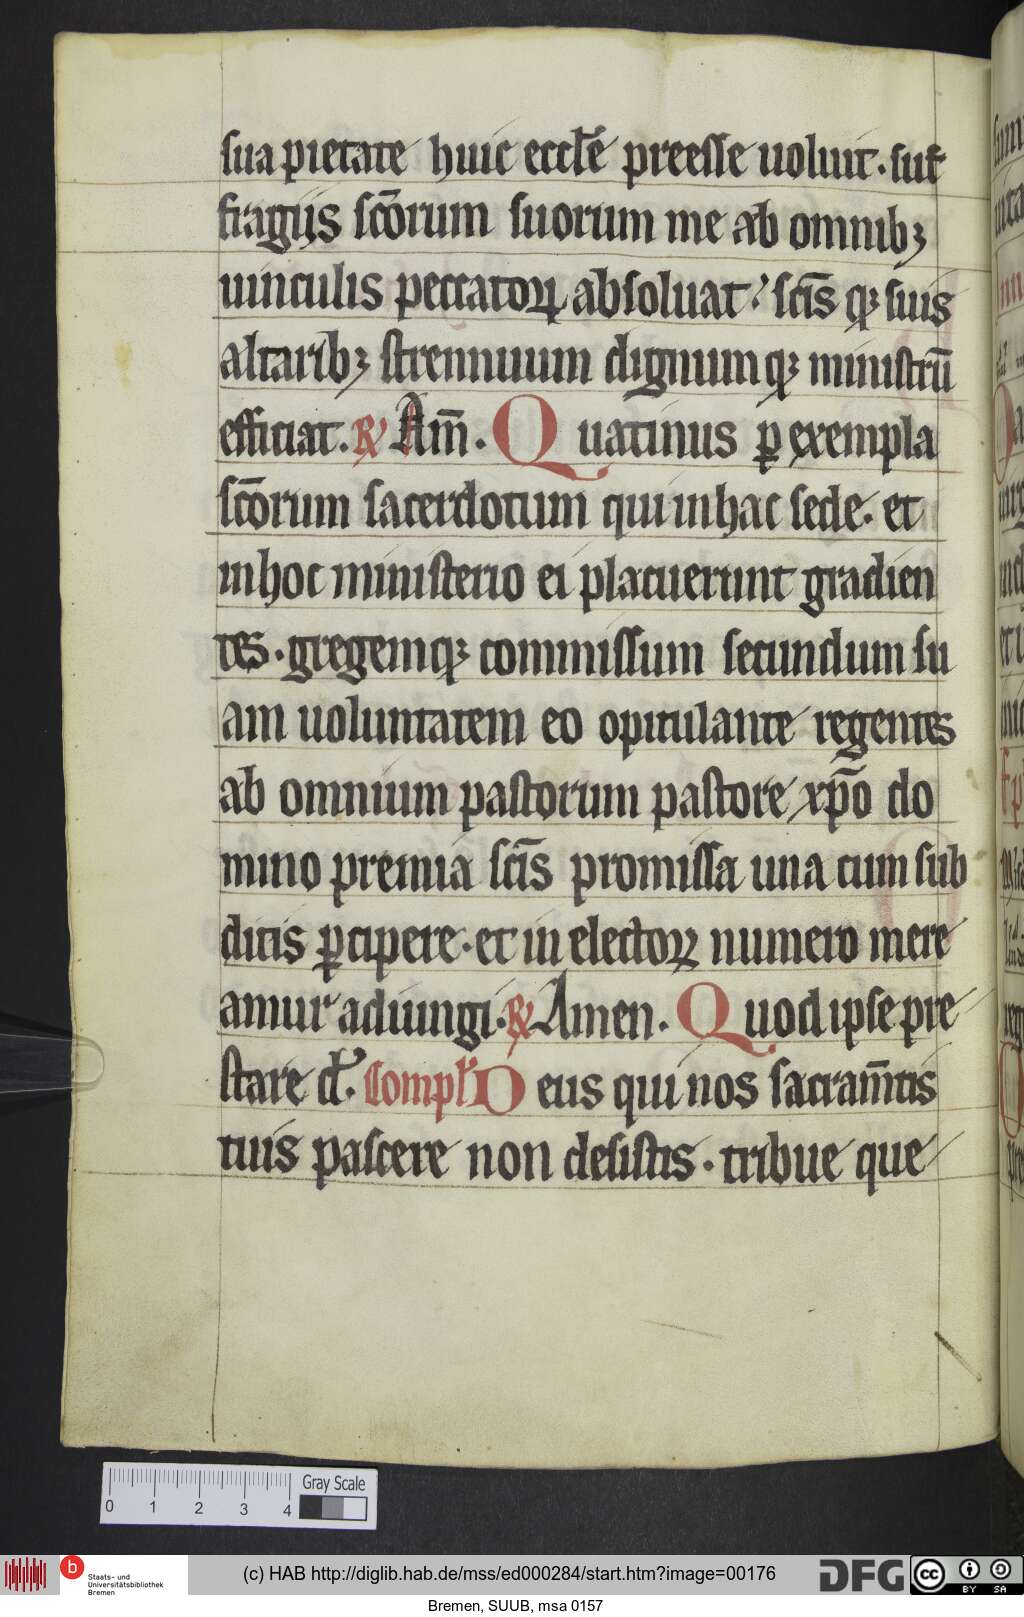 sua pietate huic eccl̄e preesse uoluit · suf
fragijs sc̄orum suorum me ab omnibꝫ
uinculis peccatoꝝ absoluat : sc̄is qꝫ suis
altaribꝫ strennuum dignum qꝫ ministrū
efficiat . ℟ Am̄ . Quatinus ꝑ exempla
sc̄orum sacerdotum qui in hac sede · et
in hoc ministerio ei placuerunt gradien
tes · gregemqꝫ commissum secundum su
am uoluntatem eo opitulante regentes
ab omnium pastorum pastore xp̄o do
mino premia sc̄is promissa una cum sub
ditis ꝑcipere · et in electoꝝ numero mere
amur adiungi · ℟ Amen . Quod ipse pre
stare d̄ . Compl̄ Deus qui nos sacram̄tis
tuis pascere non desistis · tribue que
0 1 2 3 4 Gray Scale
b Staats- und
Universitätsbibliothek
Bremen
(c) HAB http://diglib.hab.de/mss/ed000284/start.htm?image=00176
DFG
cc BY SA
Bremen, SUUB, msa 0157